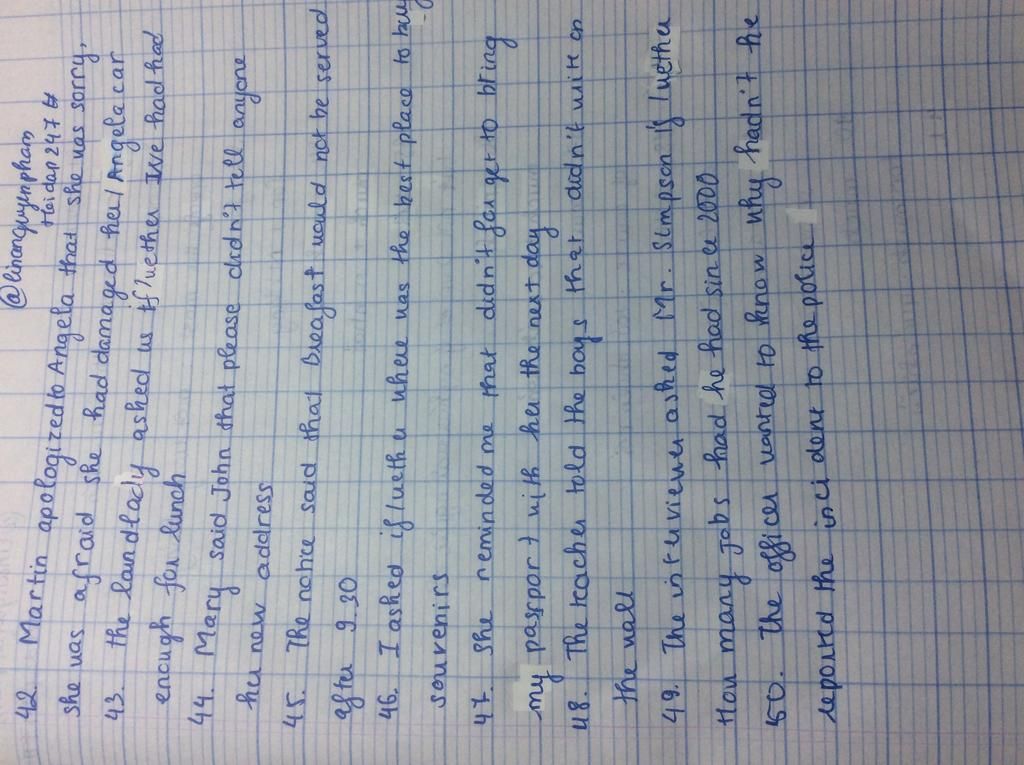 @linanguyenphan
Hoidap247
42. Martin apologized to Angela that she was sorry,
she was afraid she had damaged her/Angela car
43. the landlady asked us if/wether we have had had
enough for lunch
44. Mary said John that please didn't tell anyone
her new address
45. The notice said that Breafast would not be served
after 9.30
46. I asked if/wether where was the best place to buy
souvenirs
47. She reminded me that didn't forget to bring
my passport with her the next day
48. The teacher told the boys that didn't write on
the wall
49. The interviewer asked Mr. Simpson if/wether
How many jobs had he had since 2000
50. The officer wanted to know why hadn't he
reported the incident to the police